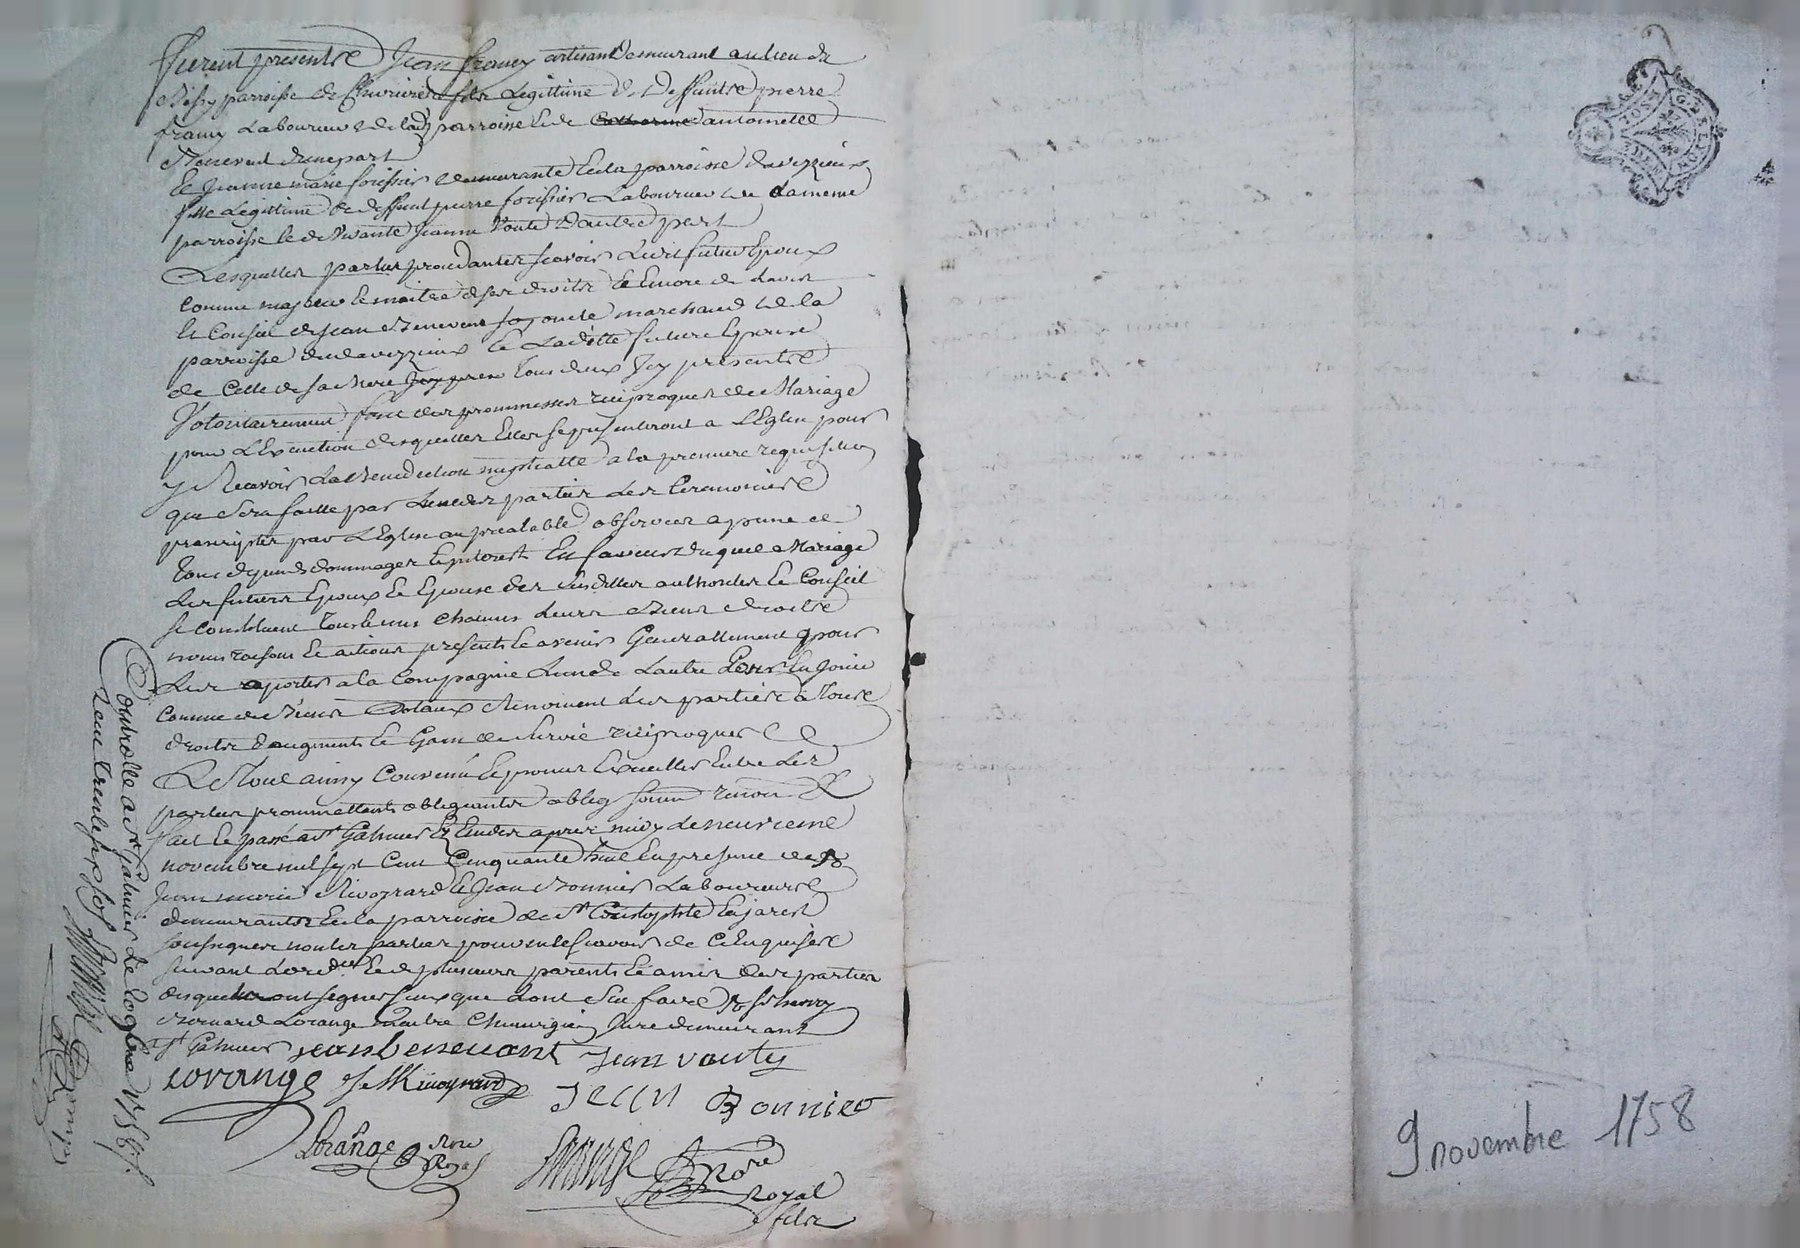 furent presents Jean francy artisant demeurant au lieu de
parroisse de Chevrieres fils Legittime de Deffunt pierre
francy Laboureur de lad parroisse et de antoinette
Benevent d'une part
Et Jeanne marie forissier demeurante en la parroisse d'aveyzieux
fille Legittime de deffunt pierre forissier Laboureur de la meme
parroisse et de vivante Jeanne Voute d'autre part
Lesquelles parties procedantes scavoir Ledit futur Epoux
comme majeur et maitre de ses droits et Encore de Lavis
Et Conseil de Jean Benevent son oncle marchand de la
parroisse d'aveyzieux et Laditte future Epouse
de Celle de sa mere tous deux Icy presents
Volontairement font des prommesses reciproques de Mariage
pour L'Execution desquelles Elles se presenteront a L'Eglise pour
y Recevoir La Benediction nuptialle a la premiere requisition
que sera faitte par L'une des parties Les Ceremonies
prescriptes par L'Eglise au prealable observees a peine de
tous depends dommages Et interets En faveur duquel Mariage
Les futurs Epoux Et Epouse des susdittes authorites Et Conseil
se constituent tous et uns chacuns Leurs Biens droits
noms raisons Et actions presents Et avenir Generallement pour
Les aporter a la Compagnie L'un de L'autre
Comme de Biens Dotaux Renoncent Les parties a tous
droits d'augments Et Gain de survie reciproques
Le tout ainsy Convenu Et promis Executter Entre Les
parties prommettants obligeants oblig soum renon &
fait Et passé a St Galmier Es Etudes apres midy le neuvieme
novembre mil sept Cent Cinquante huit En presence de
Jean marie Rivoyrard Et Jean Bonnier Laboureurs
demeurants En la parroisse de St Cristophle En jarest
soussignes non les parties pour ne le scavoir de Ce Enquises
suivant Lord.ce Et de plusieurs parents Et amis des parties
desquels ont signes ceux que Lont sceu faire & sr
Bernard Lorange Maitre Chirurgien Juré demeurant
a St Galmier jean benevant Jean vouty
Lorange J M Rivoyrard Jean Bonnier
Lorange Nore Royal
Lorange Nore
Royal
fils
Controllé a St Galmier le 20 9bre 1758
Recu trente six sols
9 novembre 1758